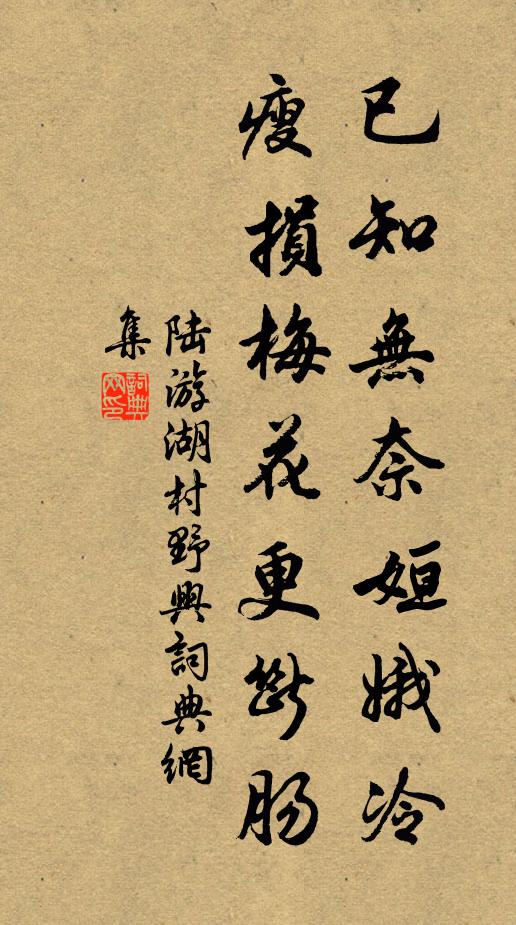 已知無奈姮娥冷
瘦損梅花更斷肠
陆游湖村野興詞典網
集
詞典網印